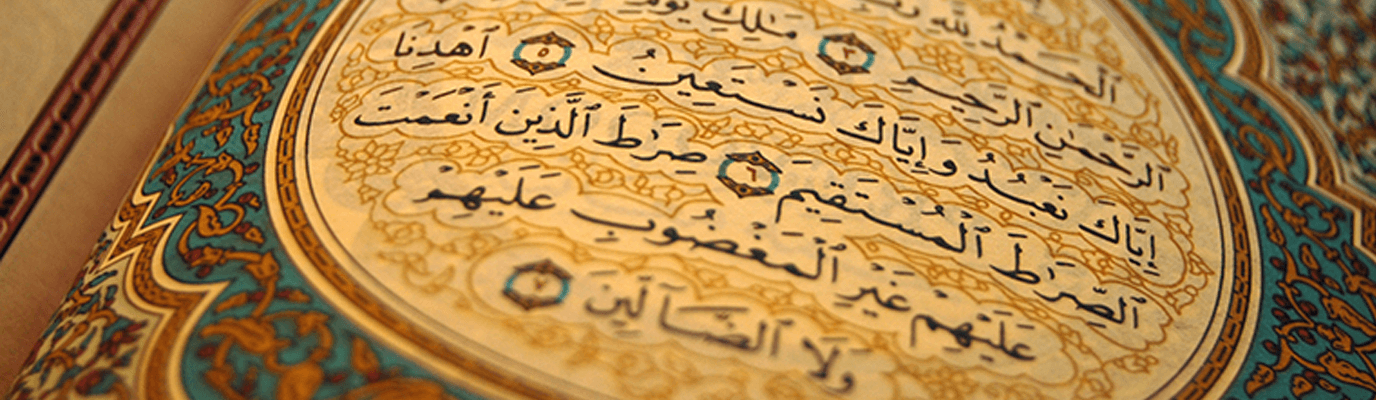 ٱلْحَمْدُ لِلَّهِ
ٱلرَّحْمَٰنِ ٱلرَّحِيمِ ٣ مَٰلِكِ يَوْمِ
إِيَّاكَ نَعْبُدُ وَإِيَّاكَ نَسْتَعِينُ ٥ ٱهْدِنَا
ٱلصِّرَٰطَ ٱلْمُسْتَقِيمَ ٦ صِرَٰطَ ٱلَّذِينَ أَنْعَمْتَ
عَلَيْهِمْ غَيْرِ ٱلْمَغْضُوبِ عَلَيْهِمْ
وَلَا ٱلضَّآلِّينَ ٧